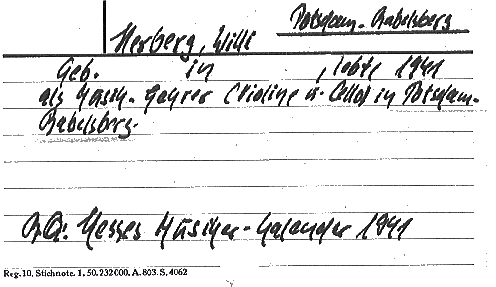 Potsdam-Babelsberg
Herberg, Willi
Geb. in , lebte 1941
als Musik-Lehrer (Violine u. Cello) in Potsdam-
Babelsberg.
Hesses Musiker-Kalender 1941
Reg.10. Stichnote. 1. 50. 232000. A. 803. S. 4062